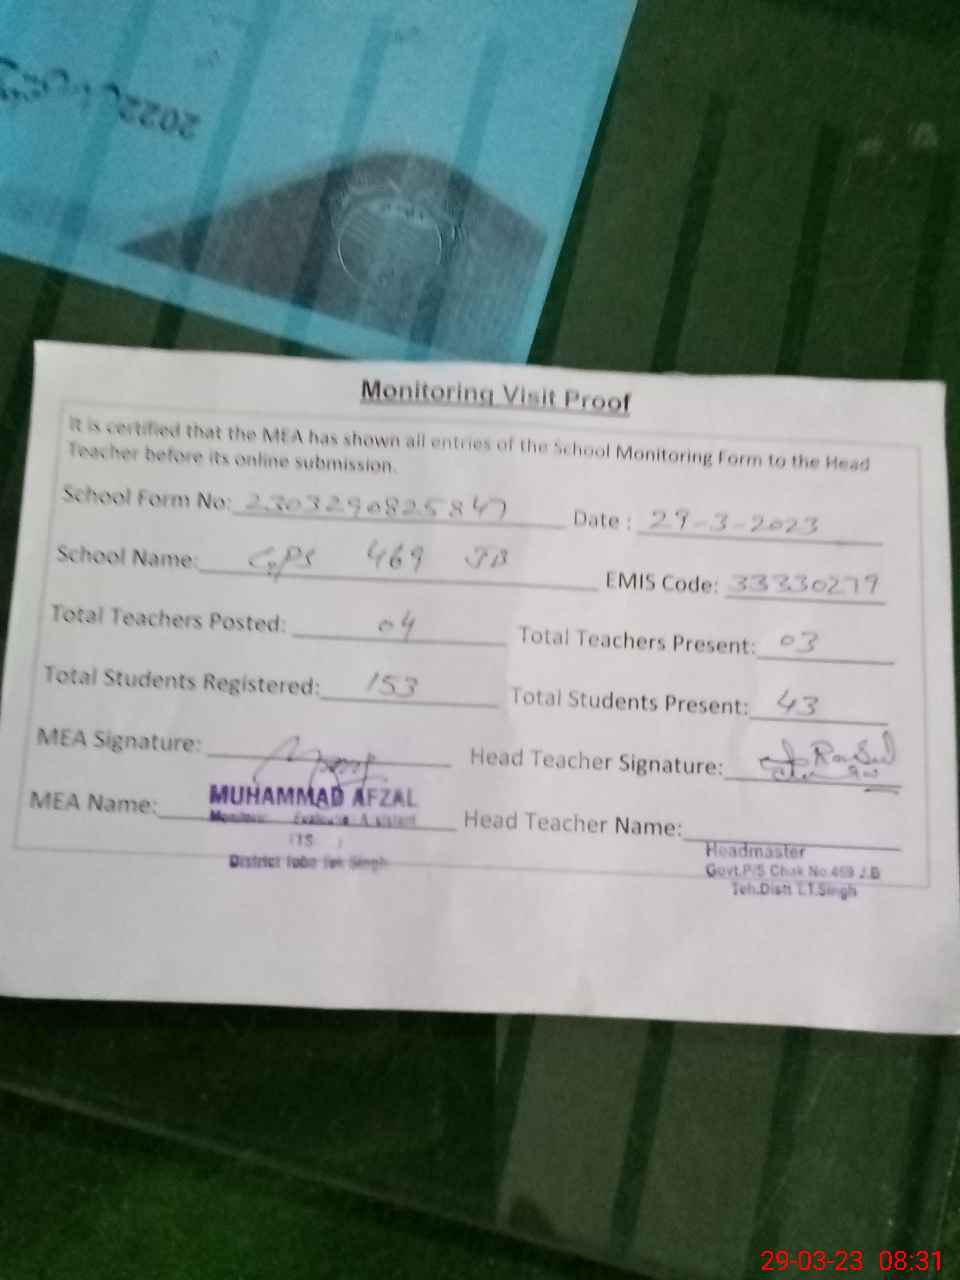 2022
Monitoring Visit Proof
It is certified that the MEA has shown all entries of the School Monitoring Form to the Head
Teacher before its online submission.
School Form No: 2303290825847 Date : 29-3-2023
School Name: GPS 469 JB EMIS Code: 33330279
Total Teachers Posted: 04 Total Teachers Present: 03
Total Students Registered: 153 Total Students Present: 43
MEA Signature: Head Teacher Signature:
MEA Name: MUHAMMAD AFZAL Head Teacher Name:
District Toba Tek Singh
Headmaster
Govt.P/S Chak No.469 J.B
Teh.Distt T.T.Singh
29-03-23 08:31